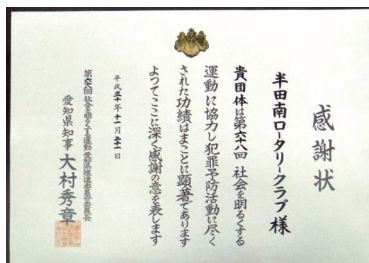 感謝状
半田南ロータリークラブ様
貴団体は第六八回社会を明るくする
運動に協力し犯罪予防活動に尽く
された功績はまことに顕著であります
よってここに深く感謝の意を表します
平成三十年十一月二十一日
第六八回社会を明るくする運動愛知県推進委員会委員長
愛知県知事 大村秀章